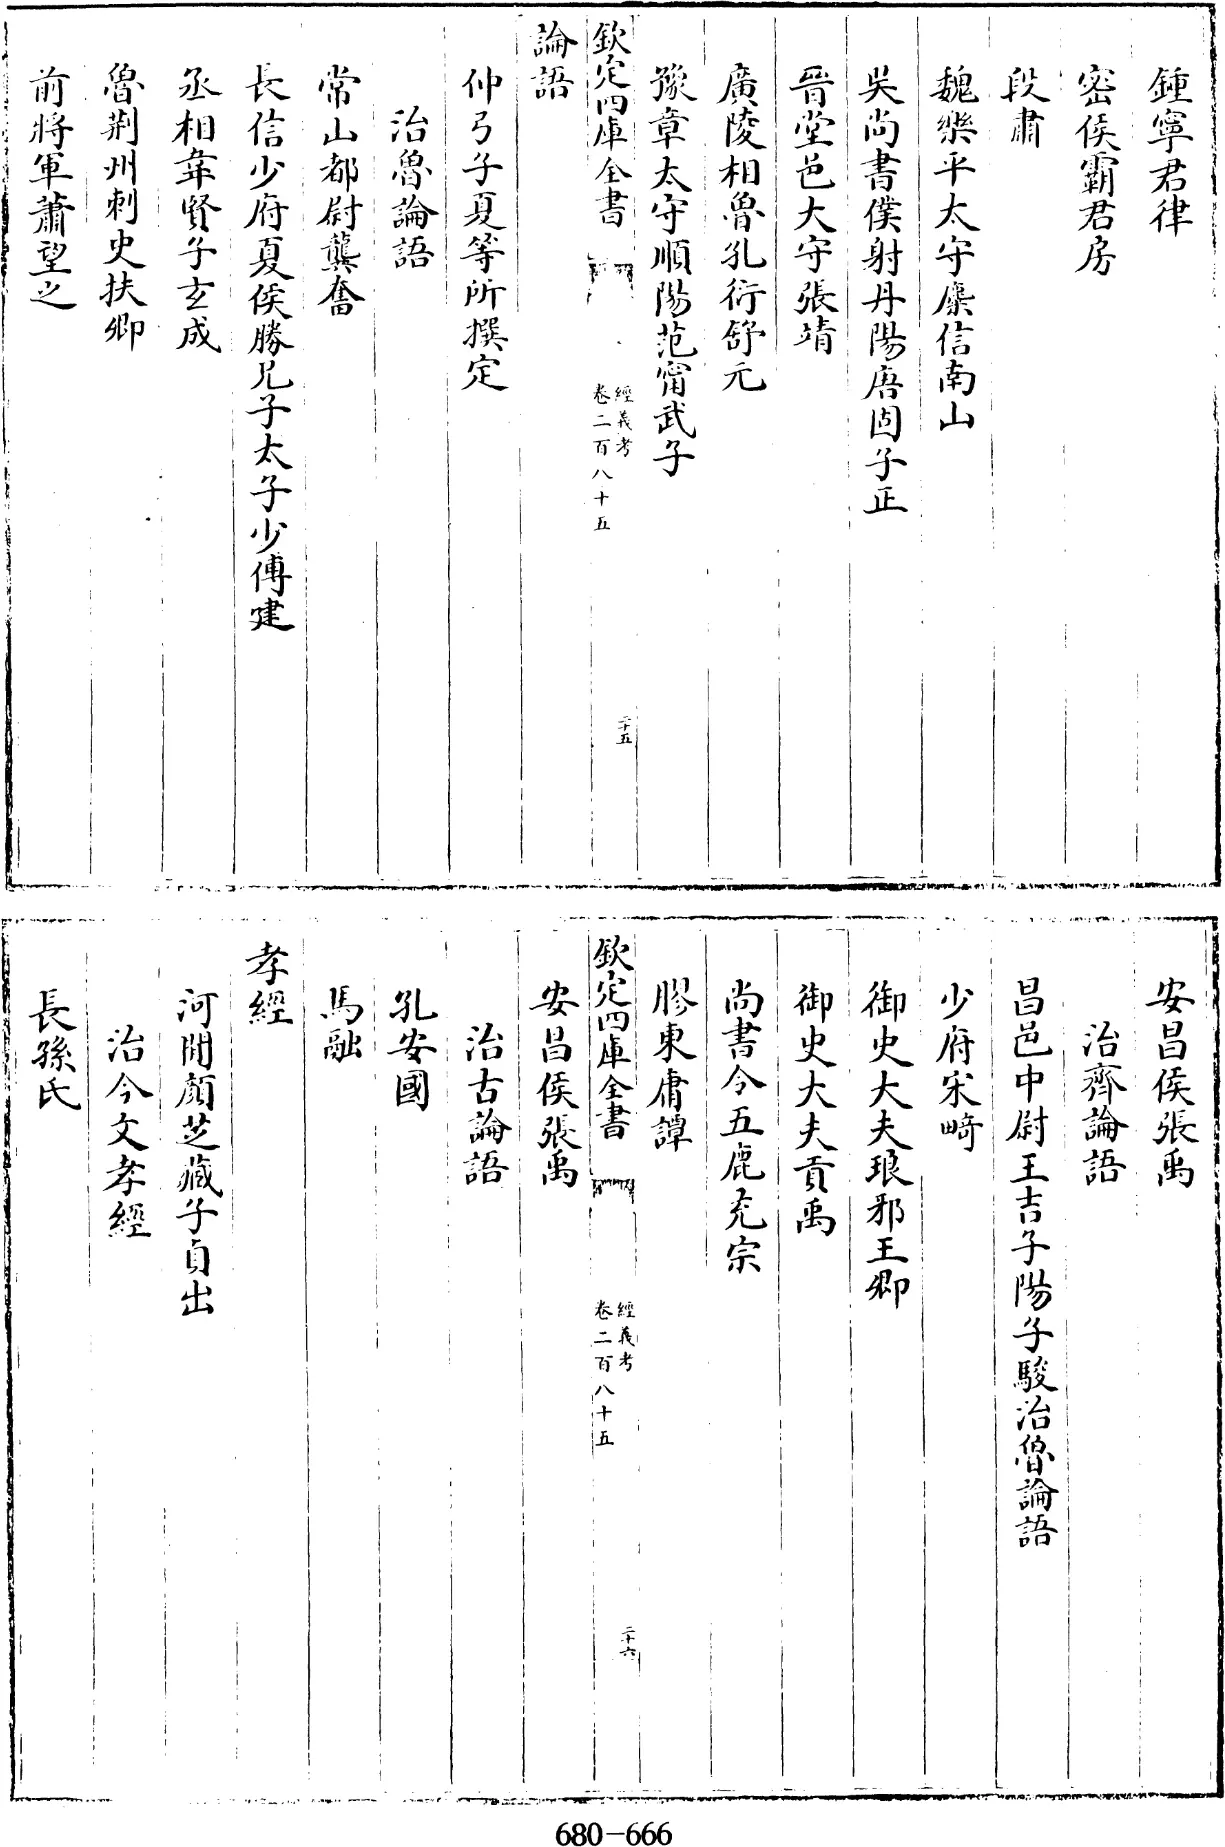 鍾寧君律
密侯霸君房
段肅
魏樂平太守麋信南山
吳尚書僕射丹陽唐固子正
晉堂邑大守張靖
廣陵相魯孔衍舒元
豫章太守順陽范甯武子
欽定四庫全書
經義考
卷二百八十五
二十五
論語
仲弓子夏等所撰定
治魯論語
常山都尉龔奮
長信少府夏侯勝兄子太子少傅建
丞相韋賢子玄成
魯荆州刺史扶卿
前將軍蕭望之
安昌侯張禹
治齊論語
昌邑中尉王吉子陽子駿治魯論語
少府宋畸
御史大夫琅邪王卿
御史大夫貢禹
尚書令五鹿充宗
膠東庸譚
欽定四庫全書
經義考
卷二百八十五
二十六
安昌侯張禹
治古論語
孔安國
馬融
孝經
河間顏芝藏子貞出
治今文孝經
長孫氏
680-666